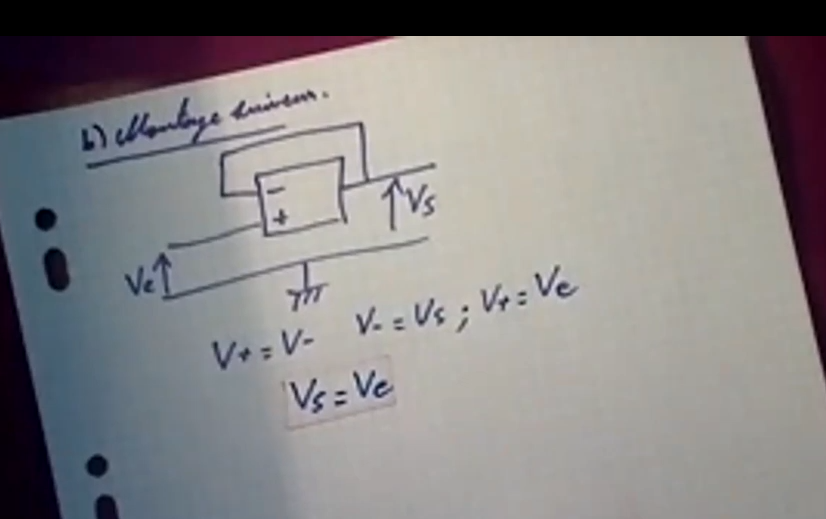 b) Montage suiveur.
-
+
Vs
Ve
V+ = V- V- = Vs ; V+ = Ve
Vs = Ve